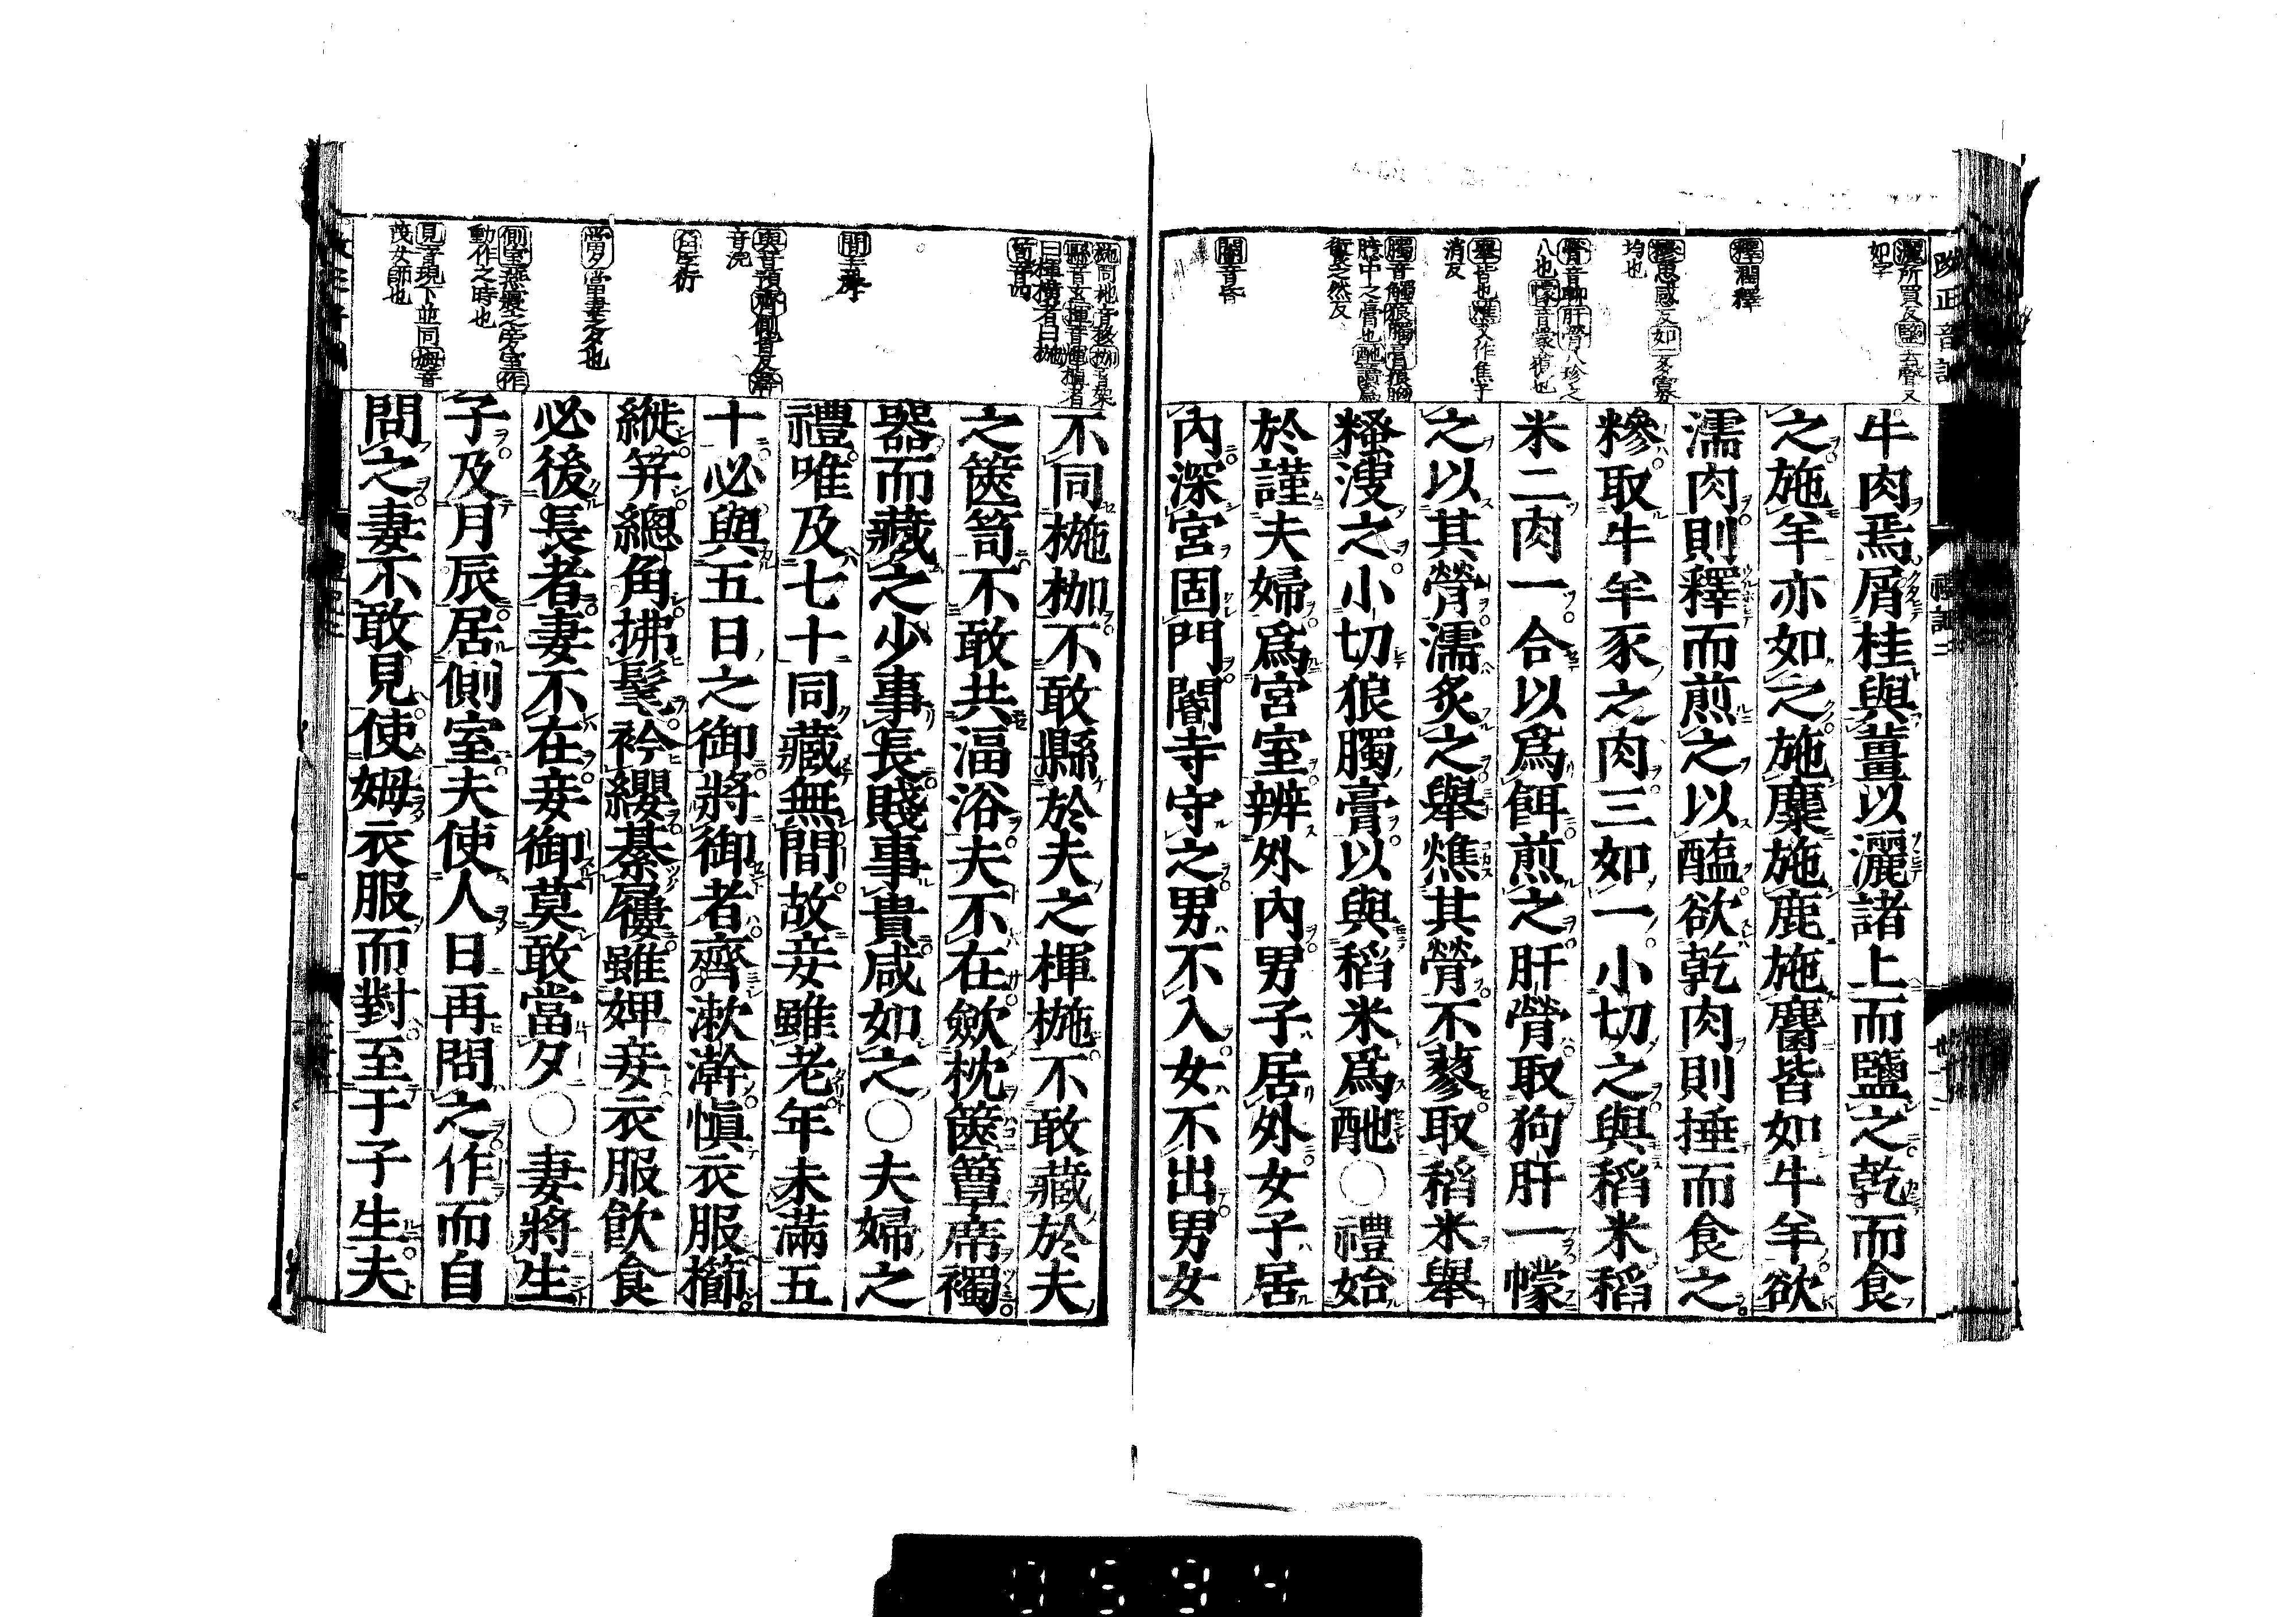 牛肉焉屑桂與薑以灑諸上而鹽之乾而食
之施羊亦如之施麋施鹿施麕皆如牛羊欲
濡肉則釋而煎之以醢欲乾肉則捶而食之
糝取牛羊豕之肉三如一小切之與稻米稻
米二肉一合以爲餌煎之肝膋取狗肝一幪
之以其膋濡炙之舉燋其膋不蓼取稻米舉
糔溲之小切狼臅膏以與稻米爲酏○禮始
於謹夫婦爲宮室辨外內男子居外女子居
內深宮固門閽寺守之男不入女不出男女
灑所買反鹽去聲又
如字
釋濶釋
糝思感反如一多寡
均也
膋音聊肝膋八珍之
八也幪音蒙樻也
舉皆也燋又作焦子
消反
臅音觸狼臅膏狼胸
臆中之膏也酏讀爲
餰之然反
閽音昏
不同椸枷不敢縣於夫之楎椸不敢藏於夫
之篋笥不敢共湢浴夫不在斂枕篋簟席襡
器而藏之少事長賤事貴咸如之○夫婦之
禮唯及七十同藏無間故妾雖老年未滿五
十必與五日之御將御者齊漱澣愼衣服櫛
縰笄總角拂髦衿纓綦屨雖婢妾衣服飮食
必後長者妻不在妾御莫敢當夕○妻將生
子及月辰居側室夫使人日再問之作而自
問之妻不敢見使姆衣服而對至于子生夫
縣音玄楎音輝植者
曰楎橫者曰椸
與音預齊側皆反澣
音浣
當夕當妻之夕也
側室燕寢之旁室作
動作之時也
見音現下並同姆音
茂女師也